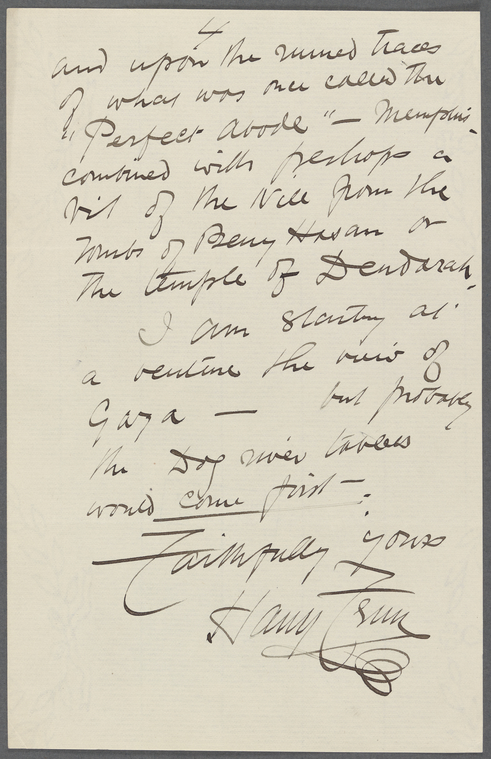 4
and upon the ruined traces
of what was once called the
"Perfect Abode" — Memphis -
combined with perhaps a
bit of the Nile from the
tombs of Beny Hasan or
the temple of Denderah.
I am starting at
a venture the view of
Gaza — but probably
the Dog river tablets
would come first —
Faithfully yours
Harry Fenn